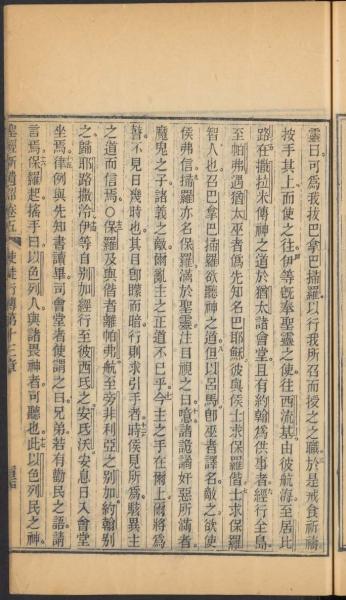 靈曰可爲我拔巴拿巴掃羅以行我所召而授之之職於是戒食祈禱
按手其上而使之往伊等旣奉聖靈之使往西流基由彼航海至居比
路在撒拉米傳神之道於猶太諸會堂且有約翰爲供事者經行全島
至帕弗遇猶太巫者僞先知名巴耶穌彼與侯士求保羅偕士求保羅
智人也召巴拿巴掃羅欲聽神之道但以呂馬卽巫者譯名敵之欲使
侯弗信掃羅亦名保羅滿於聖靈注目視之曰噫諸詭譎奸惡所滿者
魔鬼之子諸義之敵爾亂主之正道不已乎今主之手在爾上爾將爲
瞽不見日幾時也其目卽矇而暗行則求引手者時侯見所爲駭異主
之道而信焉〇保羅及與偕者離帕弗航至旁非利亞之別加約翰別
之歸耶路撒冷伊等自別加經行至彼西氐之安氐沃安息日入會堂
坐焉律例與先知書讀畢司會堂者使謂之曰兄弟若有勸民之語請
言焉保羅起搖手曰以色列人與諸畏神者可聽也此以色列民之神
聖經新遺詔卷五 使徒行傳第十三章